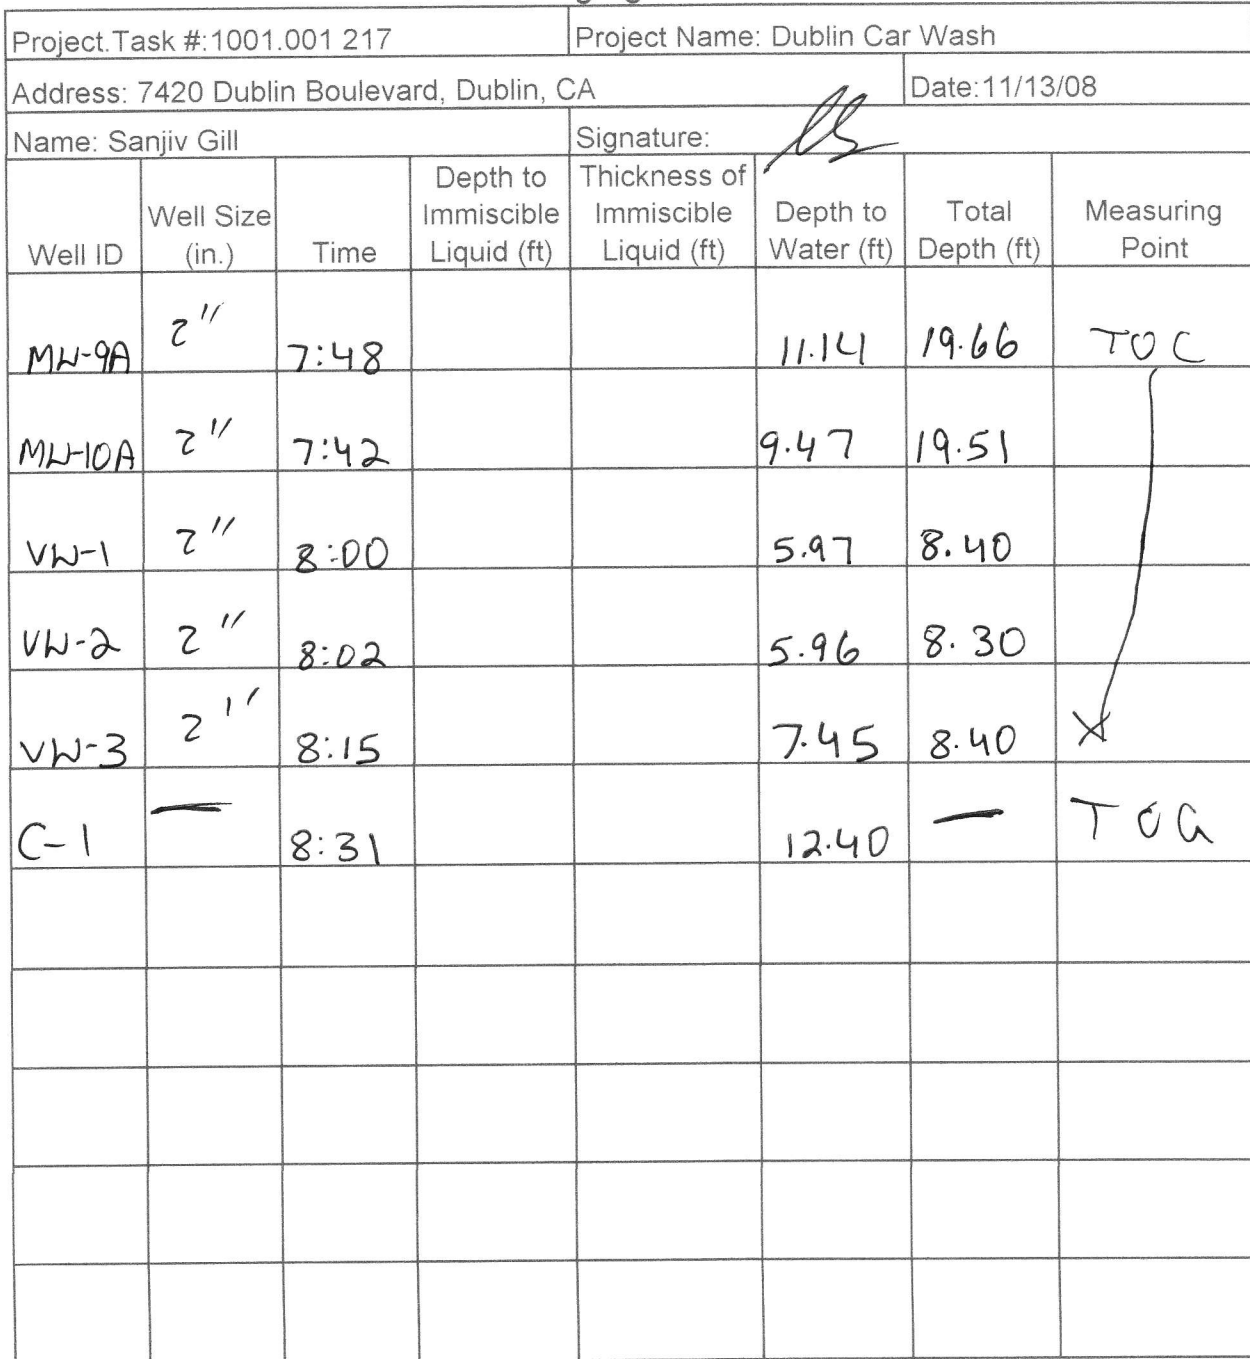 Project.Task #:1001.001 217 Project Name: Dublin Car Wash
Address: 7420 Dublin Boulevard, Dublin, CA Date:11/13/08
Name: Sanjiv Gill Signature:
Well ID Well Size (in.) Time Depth to Immiscible Liquid (ft) Thickness of Immiscible Liquid (ft) Depth to Water (ft) Total Depth (ft) Measuring Point
MW-9A 2" 7:48 11.14 19.66 TOC
MW-10A 2" 7:42 9.47 19.51
VW-1 2" 8:00 5.97 8.40
VW-2 2" 8:02 5.96 8.30
VW-3 2" 8:15 7.45 8.40
C-1 — 8:31 12.40 — TOG